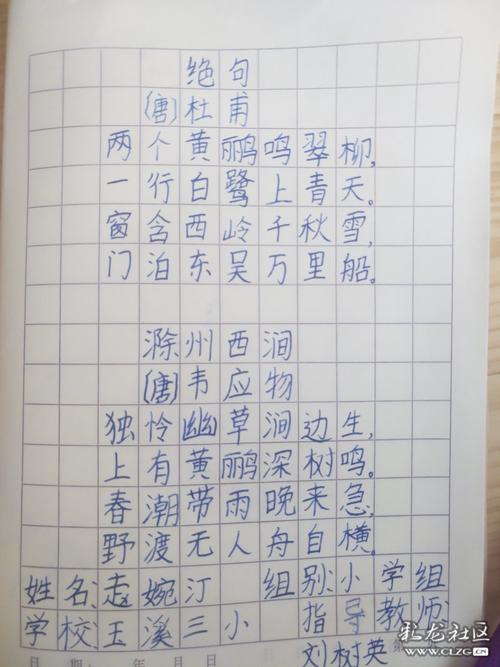 绝句
(唐)杜甫
两个黄鹂鸣翠柳,
一行白鹭上青天。
窗含西岭千秋雪,
门泊东吴万里船。
滁州西涧
(唐)韦应物
独怜幽草涧边生,
上有黄鹂深树鸣。
春潮带雨晚来急,
野渡无人舟自横。
姓名:赵婉汀 组别:小学组
学校:玉溪三小 指导教师:
刘树英
日期: 年 月 日 第
化龙社区
www.CLZG.cn